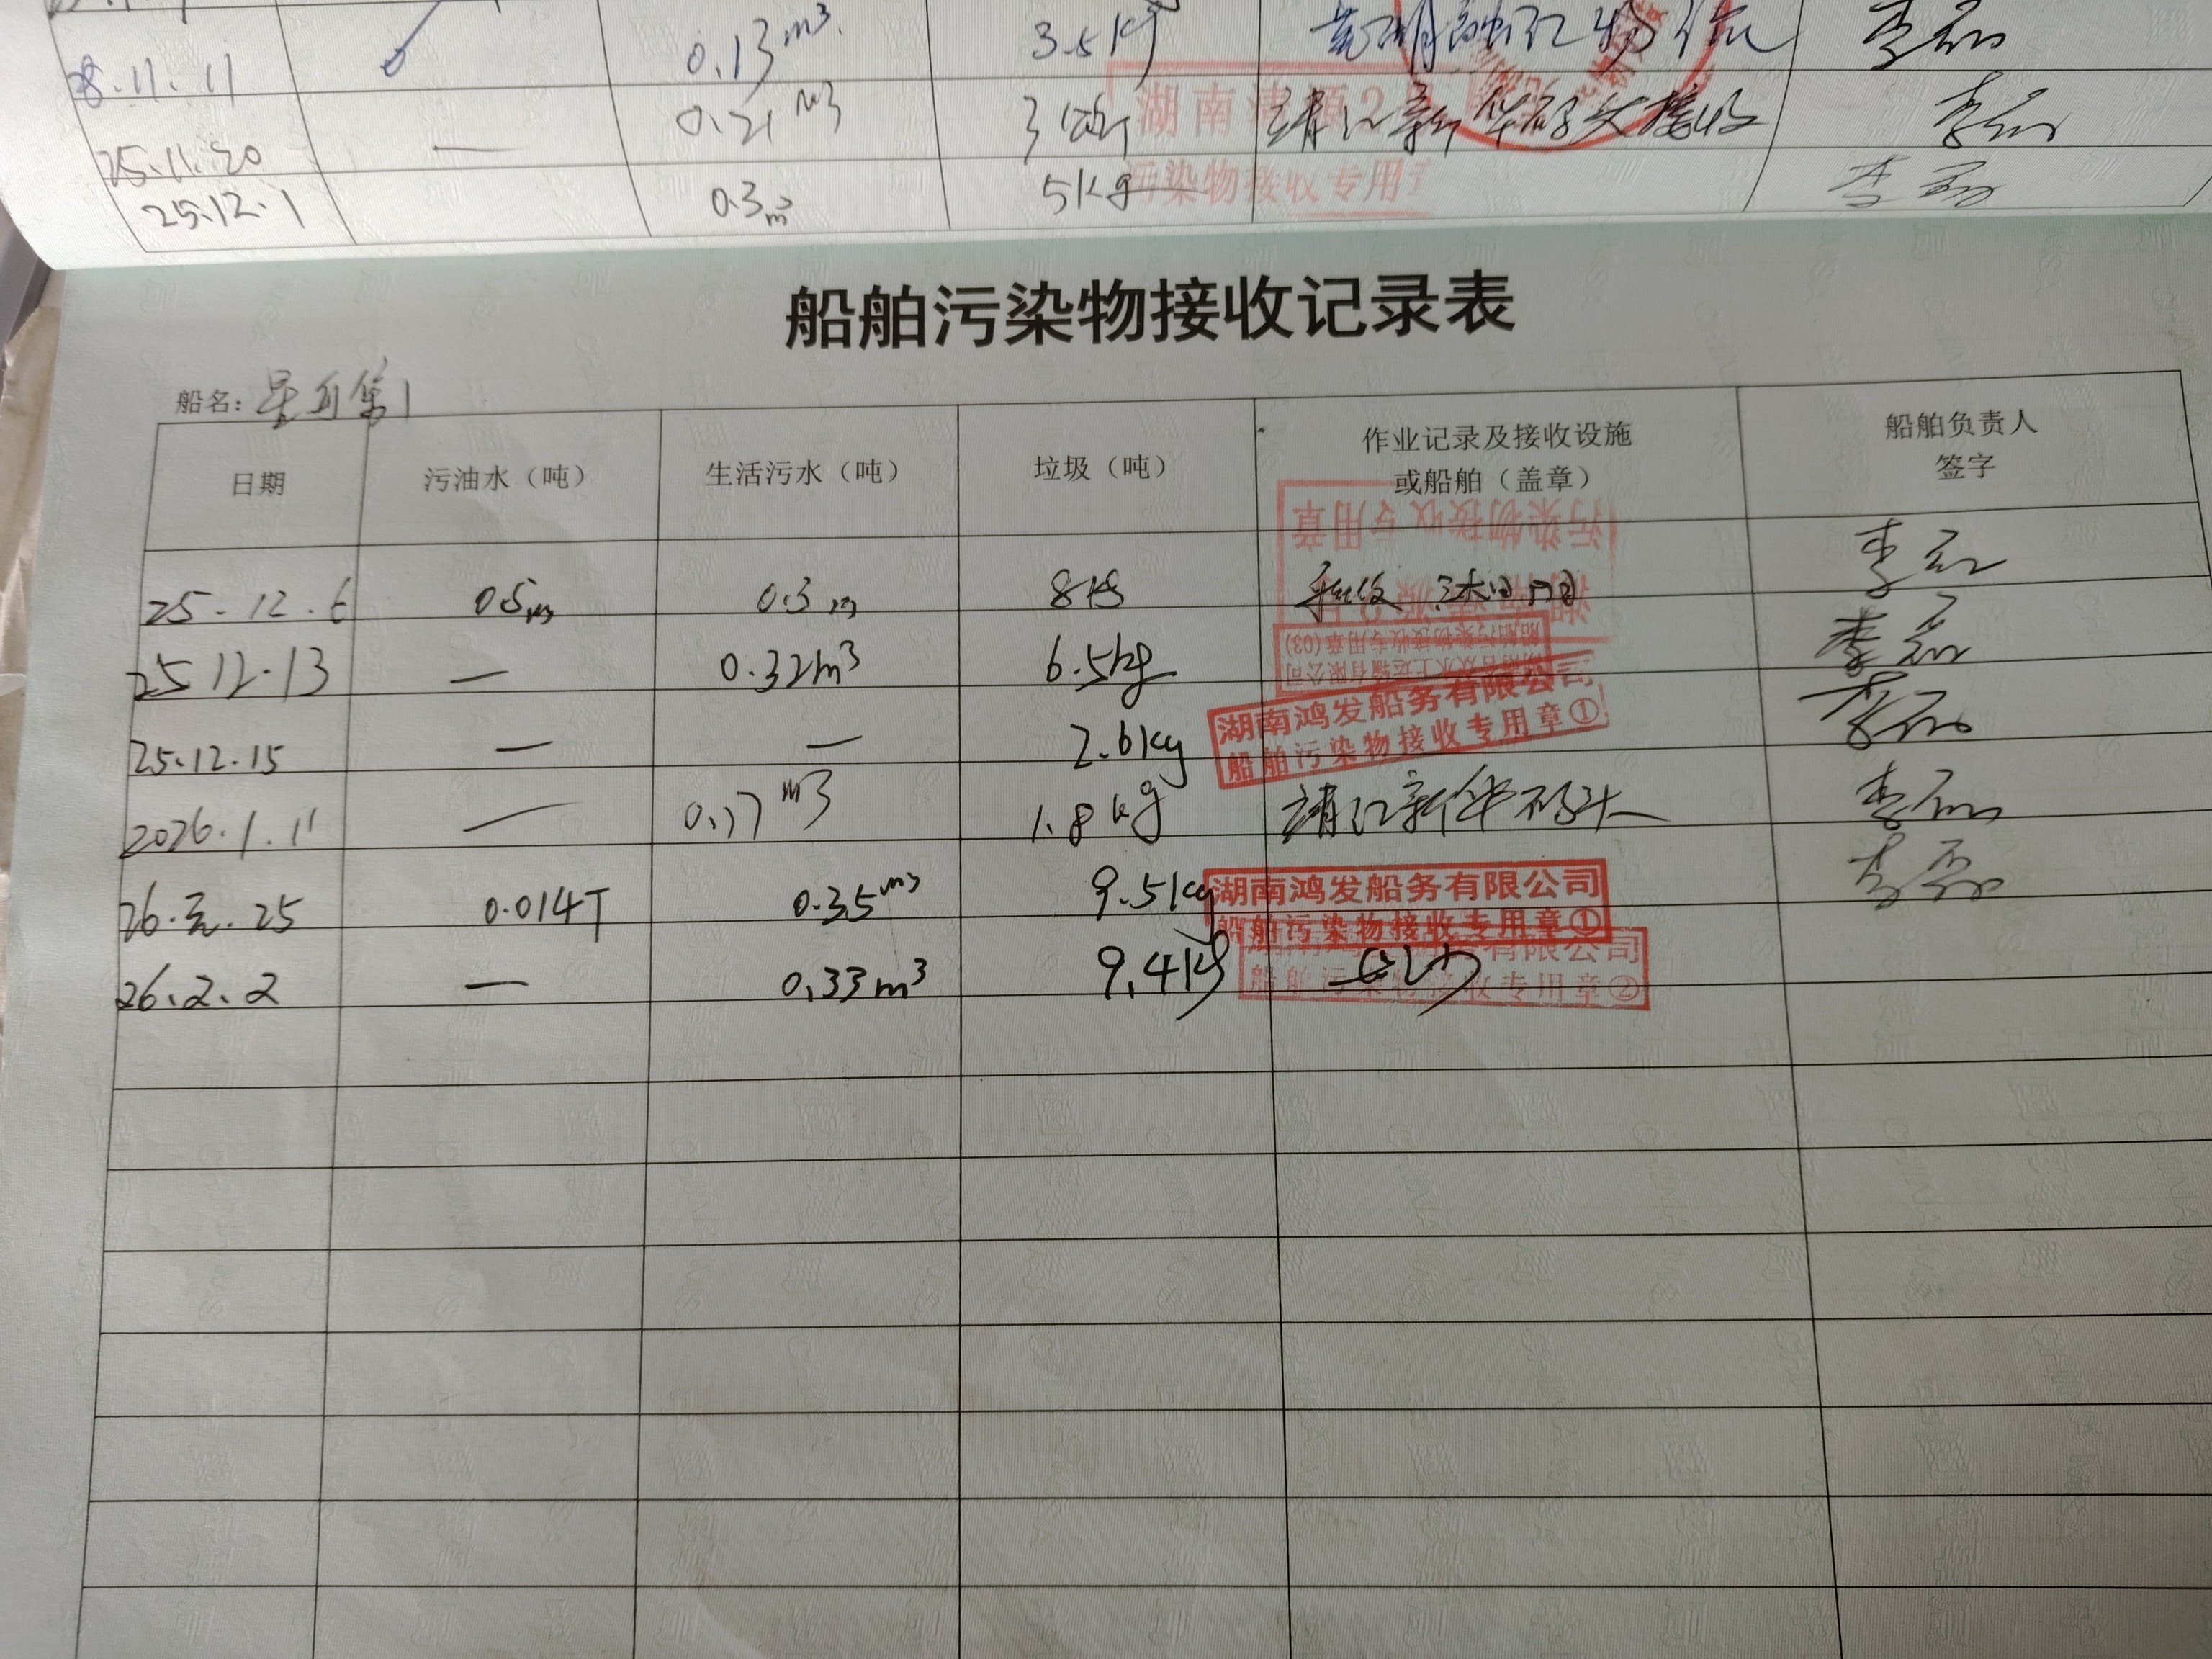 25.11.11 0.13m³. 3.5kg 李磊
25.11.20 — 0.21m³ 靖江新华码头接收 李磊
湖南
25.12.1 0.3m³ 5kg 李磊
污染物接收专用章
船舶污染物接收记录表
船名：
日期 污油水（吨） 生活污水（吨） 垃圾（吨） 作业记录及接收设施或船舶（盖章） 船舶负责人签字
污染物接收专用章
25.12.6 0.5m³ 0.3m³ 8kg 李磊
船舶污染物接收专用章(03)
25 12.13 — 0.32m³ 6.5kg 李磊
25.12.15 — — 2.6kg 湖南鸿发船务有限公司 李磊
船舶污染物接收专用章①
2026.1.11 — 0.17m³ 1.8kg 靖江新华码头 李磊
26.元.25 0.014T 0.35m³ 9.5kg 湖南鸿发船务有限公司 李磊
船舶污染物接收专用章①
26.2.2 — 0.33m³ 9.4kg
船舶污染物接收专用章②